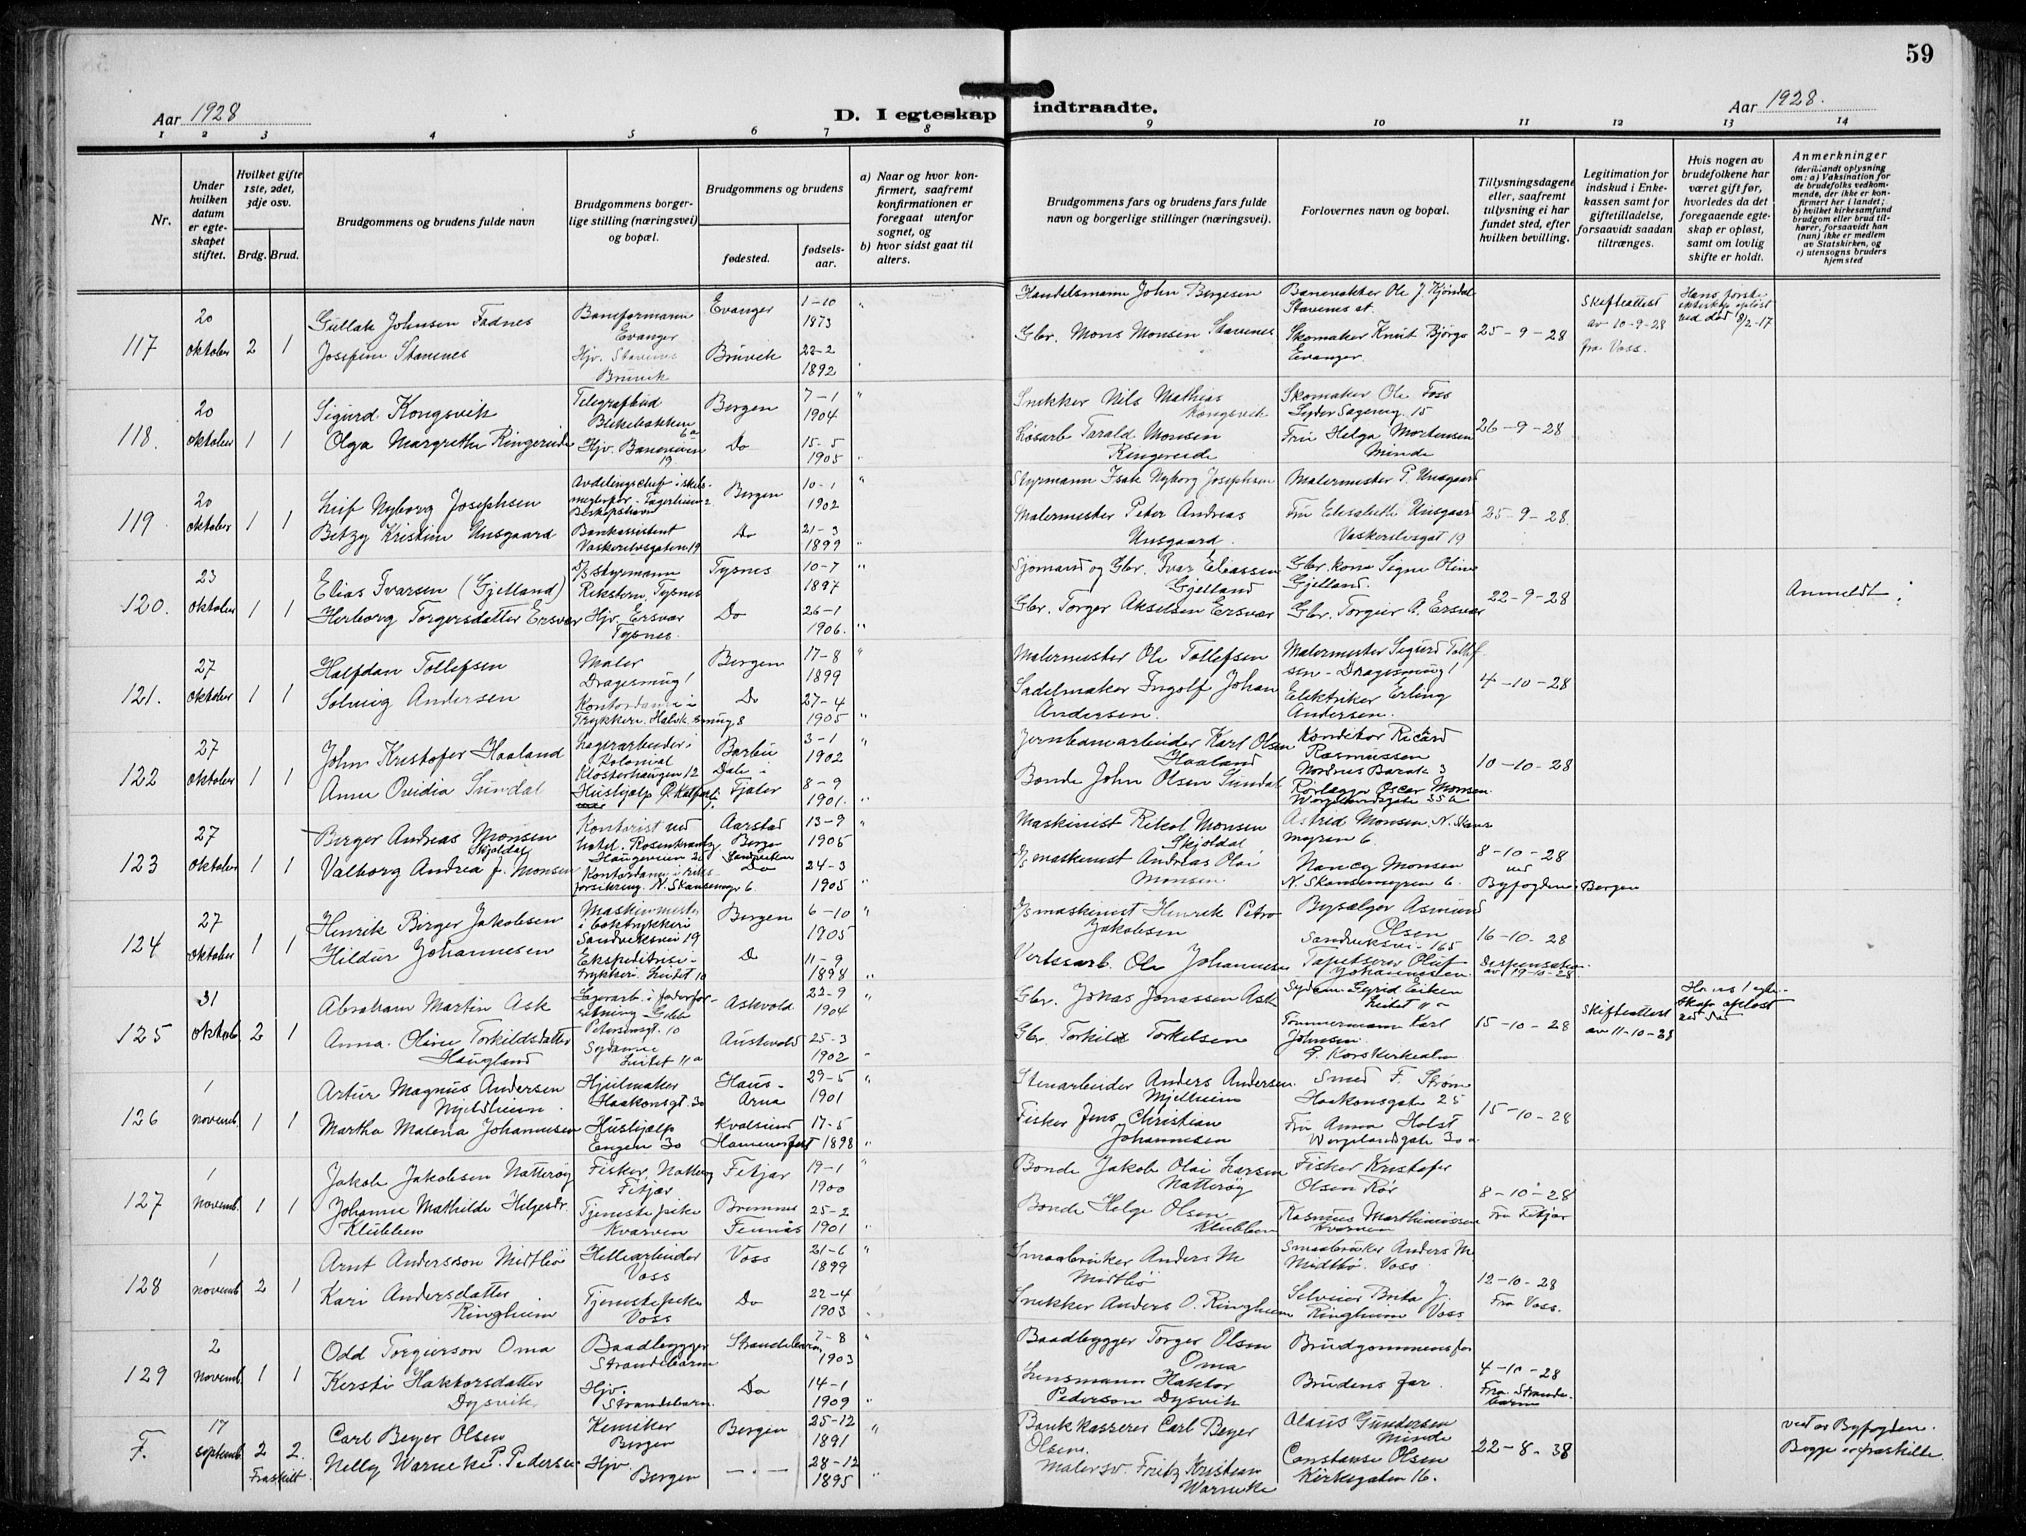 59
Aar 1928
D. I egteskap indtraadte.
Aar 1928.
1 2 3 4 5 6 7 8 9 10 11 12 13 14
Nr.
Under hvilken datum er egteskapet stiftet.
Hvilket gifte 1ste, 2det, 3dje osv.
Brdg. Brud.
Brudgommens og brudens fulde navn
Brudgommens borgerlige stilling (næringsvei) og bopæl.
Brudgommens og brudens
fødested.
fødselsaar.
a) Naar og hvor konfirmert, saafremt konfirmationen er foregaat utenfor sognet, og
b) hvor sidst gaat til alters.
Brudgommens fars og brudens fars fulde navn og borgerlige stillinger (næringsvei).
Forlovernes navn og bopæl.
Tillysningsdagene eller, saafremt tillysning ei har fundet sted, efter hvilken bevilling.
Legitimation for indskud i Enkekassen samt for giftetilladelse, forsaavidt saadan tiltrænges.
Hvis nogen av brudefolkene har været gift før, hvorledes da det foregaaende egteskap er opløst, samt om lovlig skifte er holdt.
Anmerkninger
(deriblandt oplysning om: a) Vaksination for de brudefolks vedkommende, der ikke er konfirmert her i landet; b) hvilket kirkesamfund brudgom eller brud tilhører, forsaavidt han (hun) ikke er medlem av Statskirken, og c) utensogns bruders hjemsted
117 20 oktober 2 1
Gullak Johnsen Fadnes
Baneformann Evanger
Evanger 1-10 1873
Handelsmann John Bergesen
Banevakter Ole J. Kjøndal Stavenes st.
Josefine Stavenes
Hjv. Stavenes Bruvik
Bruvik 22-2 1892
Gbr. Mons Monsen Stavenes
Skomaker Knut Bjørgo Evanger.
25-9-28
Skifteattest av 10-9-28 fra Voss.
Hans første ekteskap opløst ved død 8/2-17
118. 20 oktober 1 1
Sigurd Kongsvik
Telegrafbud Blekebakken 6a
Bergen 7-1 1904
Snekker Nils Mathias Kongsvik
Skomaker Ole Foss 15
Olga Margrethe Ringereide
Hjv. Baneveien 19
Do 15-5 1905
Løsarb Tarald Monsen Ringereide
Fru Helga Mortensen Minde
26-9-28
119 20 oktober 1 1
Leif Nyborg Josephsen
Avdelingschef i skibsmeglerfor.
Bergen 10-1 1902
Styrmann Isak Nyborg Josephsen
Malermester P. Unsgaard
Betzy Kristine Unsgaard
Bankassistent Vaskerelvsgaten 19
Do 21-3 1899
Malermester Peter Andreas Unsgaard.
Fru Elisabeth Unsgaard Vaskerelvsgat 19
25-9-28.
120. 23 oktober 1 1
Elias Ivarsen (Gjelland)
D/S styrmann Rikstern, Tysnes
Tysnes 10-7 1897
Sjømand og Gbr. Ivar Eliassen Gjelland
Gbr. kona Signe Oline Gjelland.
Herborg Torgersdatter Ersvær
Hjv. Ersvær Tysnes.
Do 26-1 1906.
Gbr. Torger Akselsen Ersvær
Gbr. Torger A. Ersvær
22-9-28
Anmeldt
121. 27 oktober 1 1
Halfdan Tollefsen
Maler Dragesmug 1
Bergen 17-8 1899
Malermester Ole Tollefsen
Malermester Sigurd Tollefsen - Dragesmug 1
Solveig Andersen
Kontordame i Trykkeri. Halvk.smug 8
Do 27-4 1905
Sadelmaker Ingolf Johan Andersen.
Elektriker Erling Andersen.
4-10-28
122 27 oktober 1 1
John Kristofer Haaland
Lagerarbeider i Kolonial Klosterhaugen 12
Barbu 3-1 1902
Jernbanearbeider Karl Olsen Haaland
Konditor Ricard Rasmussen Nordnes Barak 3
Anna Ovidia Sundal
Hushjelp Ø. Kalfar
Dale i Fjaler 8-9 1901.
Bonde John Olsen Sundal
Rørlegger Oscar Monsen Wergelandsgate 35 a
10-10-28
123 27 oktober 1 1
Berger Andreas Monsen Skjoldal
Kontorist ved hotel Rosenkrantz, Haugeveien 28
Aarstad Bergen 13-9 1905
Maskinist Rikol Monsen Skjoldal
Astrid Monsen. N. Skansemyren 6.
Valborg Andrea J. Monsen
Kontordame i Riksforsikring. N. Skansemyr 6.
Do 24-3 1905
D/S maskinist Andreas Olai Monsen.
Nancy Monsen N. Skansemyren 6.
8-10-28 ved Byfogden i Bergen
124 27 oktober 1 1
Henrik Berger Jakobsen
Maskinmester i boktrykkeri Sandviksvei 19
Bergen 6-10 1905
D/S maskinist Henrik Petro Jakobsen
Bysælger Asmund Olsen Sandviksvei 165
Hildur Johannesen
Ekspeditrise i trykkeri
Do 11-9 1898
Verftsarb. Ole Johannesen
Tapetserer Oluf Johannessen.
16-10-28
Dispensation av 19-10-28
125 31 oktob. 2 1
Abraham Martin Ask
Lagerarb. i foderforretning Petersensgt. 10
Askvold 22-9 1904
Gbr. Jonas Jonassen Ask
Sydam. Gyrid Eiken
Anna Oline Torkildsdatter Haugland
Sydame
Austevold 25-3 1902
Gbr. Torkild Torkelsen
Tømmermann Karl Johnsen Ø. Korskirkealm
15-10-28
Skifteattest av 11-10-28
Hans 1 egteskap opløst ved død
126 1 novemb. 1 1
Artur Magnus Andersen Mjeldheim
Hjulmaker Haakonsgt. 30
Haus - Arna 29-5 1901
Stenarbeider Anders Andersen Mjelheim
Smed F. Strøm Haakonsgate 25
Martha Malena Johannesen
Hushjælp Engen 30
Kvalsund Hammerfest 17-5 1898
Fisker Jens Christian Johannesen
Fru Anna Holst Wergelandsgate 30 a
15-10-28
127 1 novemb. 1 1
Jakob Jakobsen Natterøy
Fisker, Natterøy Fitjar
Fitjar 19-1 1900
Bonde Jakob Olai Larsen Natterøy
Fisker Kristofer Olsen Rør
Johanne Mathilde Helgesdr. Klubben
Tjenestepike Kvarven
Bremnes Finnås 25-2 1901
Bonde Helge Olsen Klubben
Rasmus Marthinussen Kvarven
8-10-28 Fra Fitjar
128 1 novemb. 2 1
Arnt Andersson Midtbø
Hellearbeider Voss
Voss 21-6 1899
Smaabruker Anders M. Midtbø
Smaabruker Anders M. Midtbø. Voss
Kari Andersdatter Ringheim
Tjenestepike Voss
Do 22-4 1903
Snekker Anders O. Ringheim
Brita J. Ringheim Voss
12-10-28 Fra Voss.
129 2 novemb. 1 1
Odd Torgerson Oma
Baadbygger Strandebarm
Strandebarm 7-8 1903
Baadbygger Torger Olsen Oma
Brudgommens far
Kersti Haktorsdatter Dysvik
Hjv. Strandebarm.
Do 14-1 1909
Lensmann Haktor Pederson Dysvik
Brudens far.
4-10-28 Fra Strandebarm
F. 17 septemb. 2 2. Fraskilt.
Carl Beyer Olsen
Kemiker Bergen
Bergen 25-12 1891
Bankkasserer Carl Beyer Olsen.
Olaus Gundersen Minde
Nelly Warneke P. Pedersen
Hjv. Bergen
- . - 28-12 1895
Malersv. Fritz Kristian Warneke
Constanse Olsen Kirkegaten 16.
22-8-38
viet av Byfogden. Begge er fraskilte.